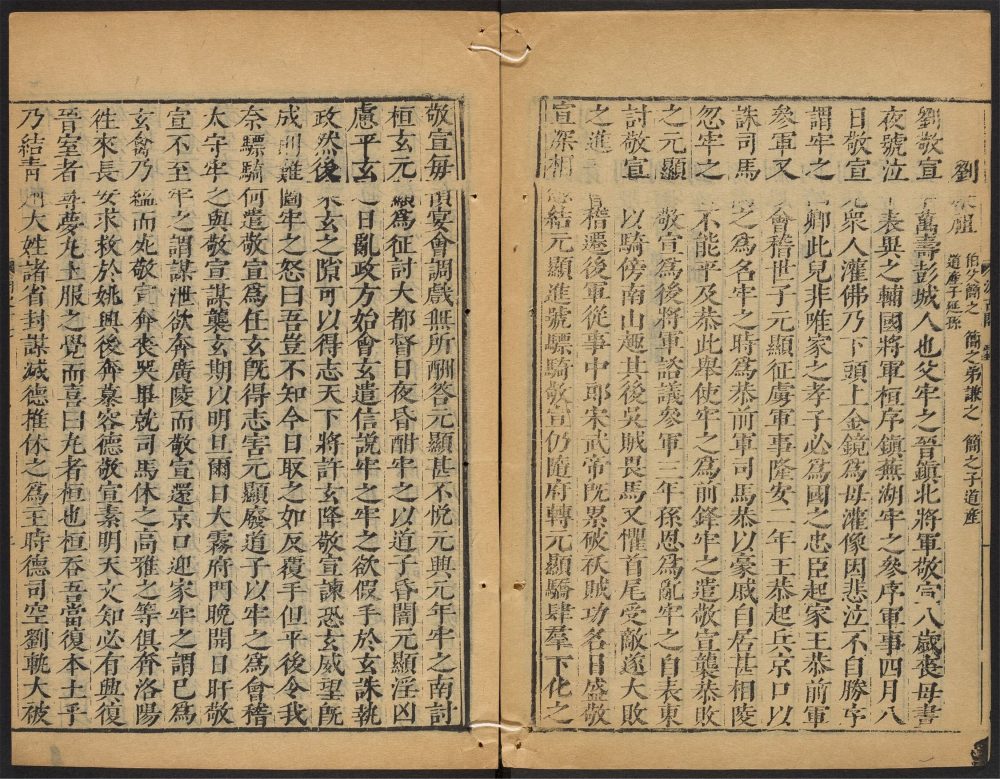 劉 祖 伯父簡之 簡之弟謙之 簡之子道產
道產子延孫
劉敬宣 萬壽彭城人也父牢之晉鎮北將軍敬宣八歲喪母晝
夜號泣 衆 輔國將軍桓序鎮蕪湖牢之參序軍事四月八
日敬宣 衆人灌佛乃下頭上金鏡爲母灌像因悲泣不自勝序
謂牢之 卿此兒非唯家之孝子必爲國之忠臣起家王恭前軍
參軍又 會稽世子元顯征虜軍事隆安二年王恭起兵京口以
誅司馬 之爲名牢之時爲恭前軍司馬恭以豪戚自居甚相陵
忽牢之 不能平及恭此舉使牢之爲前鋒牢之遣敬宣襲恭敗
之元顯 敬宣爲後將軍諮議參軍三年孫恩爲亂牢之自表東
討敬宣 以騎傍南山趣其後吳賊畏馬又懼首尾受敵遂大敗
之進 會稽遷後軍從事中郎宋武帝旣累破祅賊功名日盛敬
宣深相 結元顯進號驃騎敬宣仍隨府轉元顯驕肆羣下化之
敬宣每 宴會調戲無所酬答元顯甚不悅元興元年牢之南討
桓玄元顯爲征討大都督日夜昏酣牢之以道子昏闇元顯淫凶
慮平玄之日亂政方始會玄遣信說牢之牢之欲假手於玄誅執
政然後 玄之隙可以得志天下將許玄降敬宣諫恐玄威望旣
成則難圖牢之怒曰吾豈不知今日取之如反覆手但平後令我
奈驃騎何遣敬宣爲任玄旣得志害元顯廢道子以牢之爲會稽
太守牢之與敬宣謀襲玄期以明旦爾日大霧府門晚開日旰敬
宣不至牢之謂謀泄欲奔廣陵而敬宣還京口迎家牢之謂已爲
玄禽乃縊而死敬宣奔喪哭畢就司馬休之高雅之等俱奔洛陽
往來長安求救於姚興後奔慕容德敬宣素明天文知必有興復
晉室者尋夢丸土服之覺而喜曰丸者桓也桓吞吾當復本土乎
乃結青州大姓諸省封謀滅德推休之爲主時德司空劉軌大被